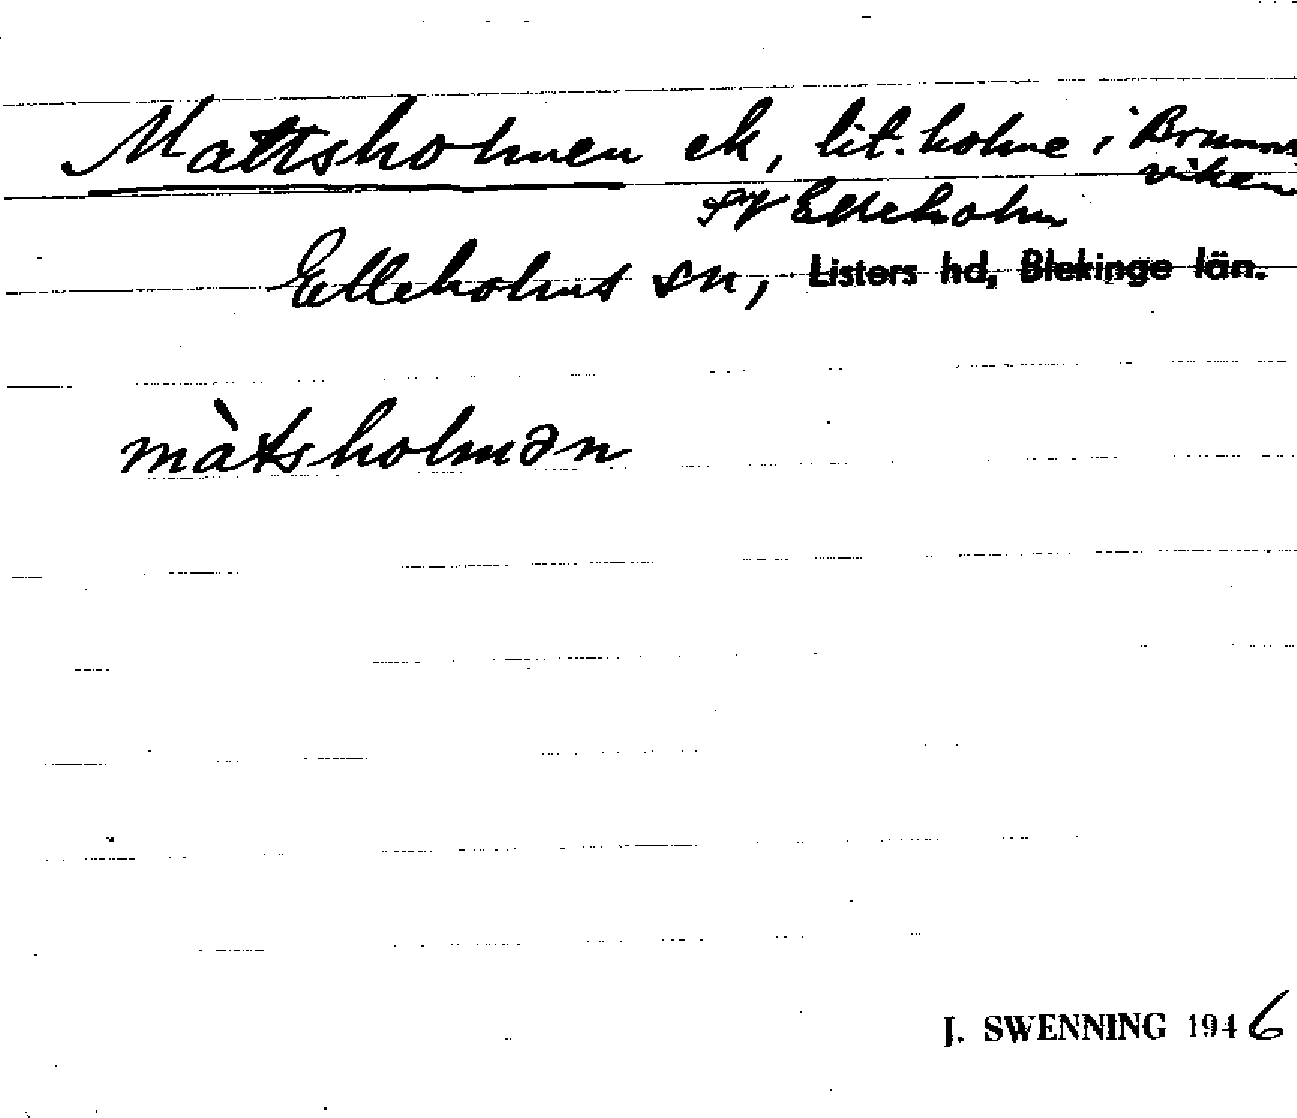 Mattsholmen ek, lit. holme i Brunns
viken
SV Elleholm
Elleholms sn, Listers hd, Blekinge län.
màtsholmən
J. SWENNING 1946